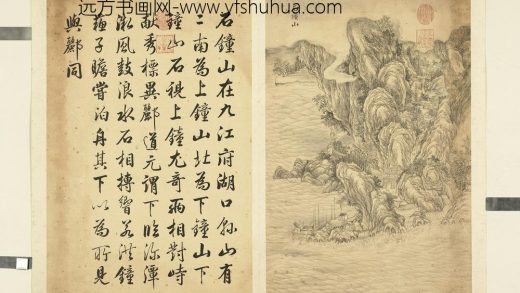 远方书画网- www.yfshuhua.com
鐘山
石鐘山在九江府湖口縣山有
二南為上鐘山北為下鐘山下
鐘山石視上鐘尤奇兩相對峙
獻秀標異酈道元謂下臨深潭
微風鼓浪水石相搏響若洪鐘
蘇子瞻嘗泊舟其下以為所見
與酈同